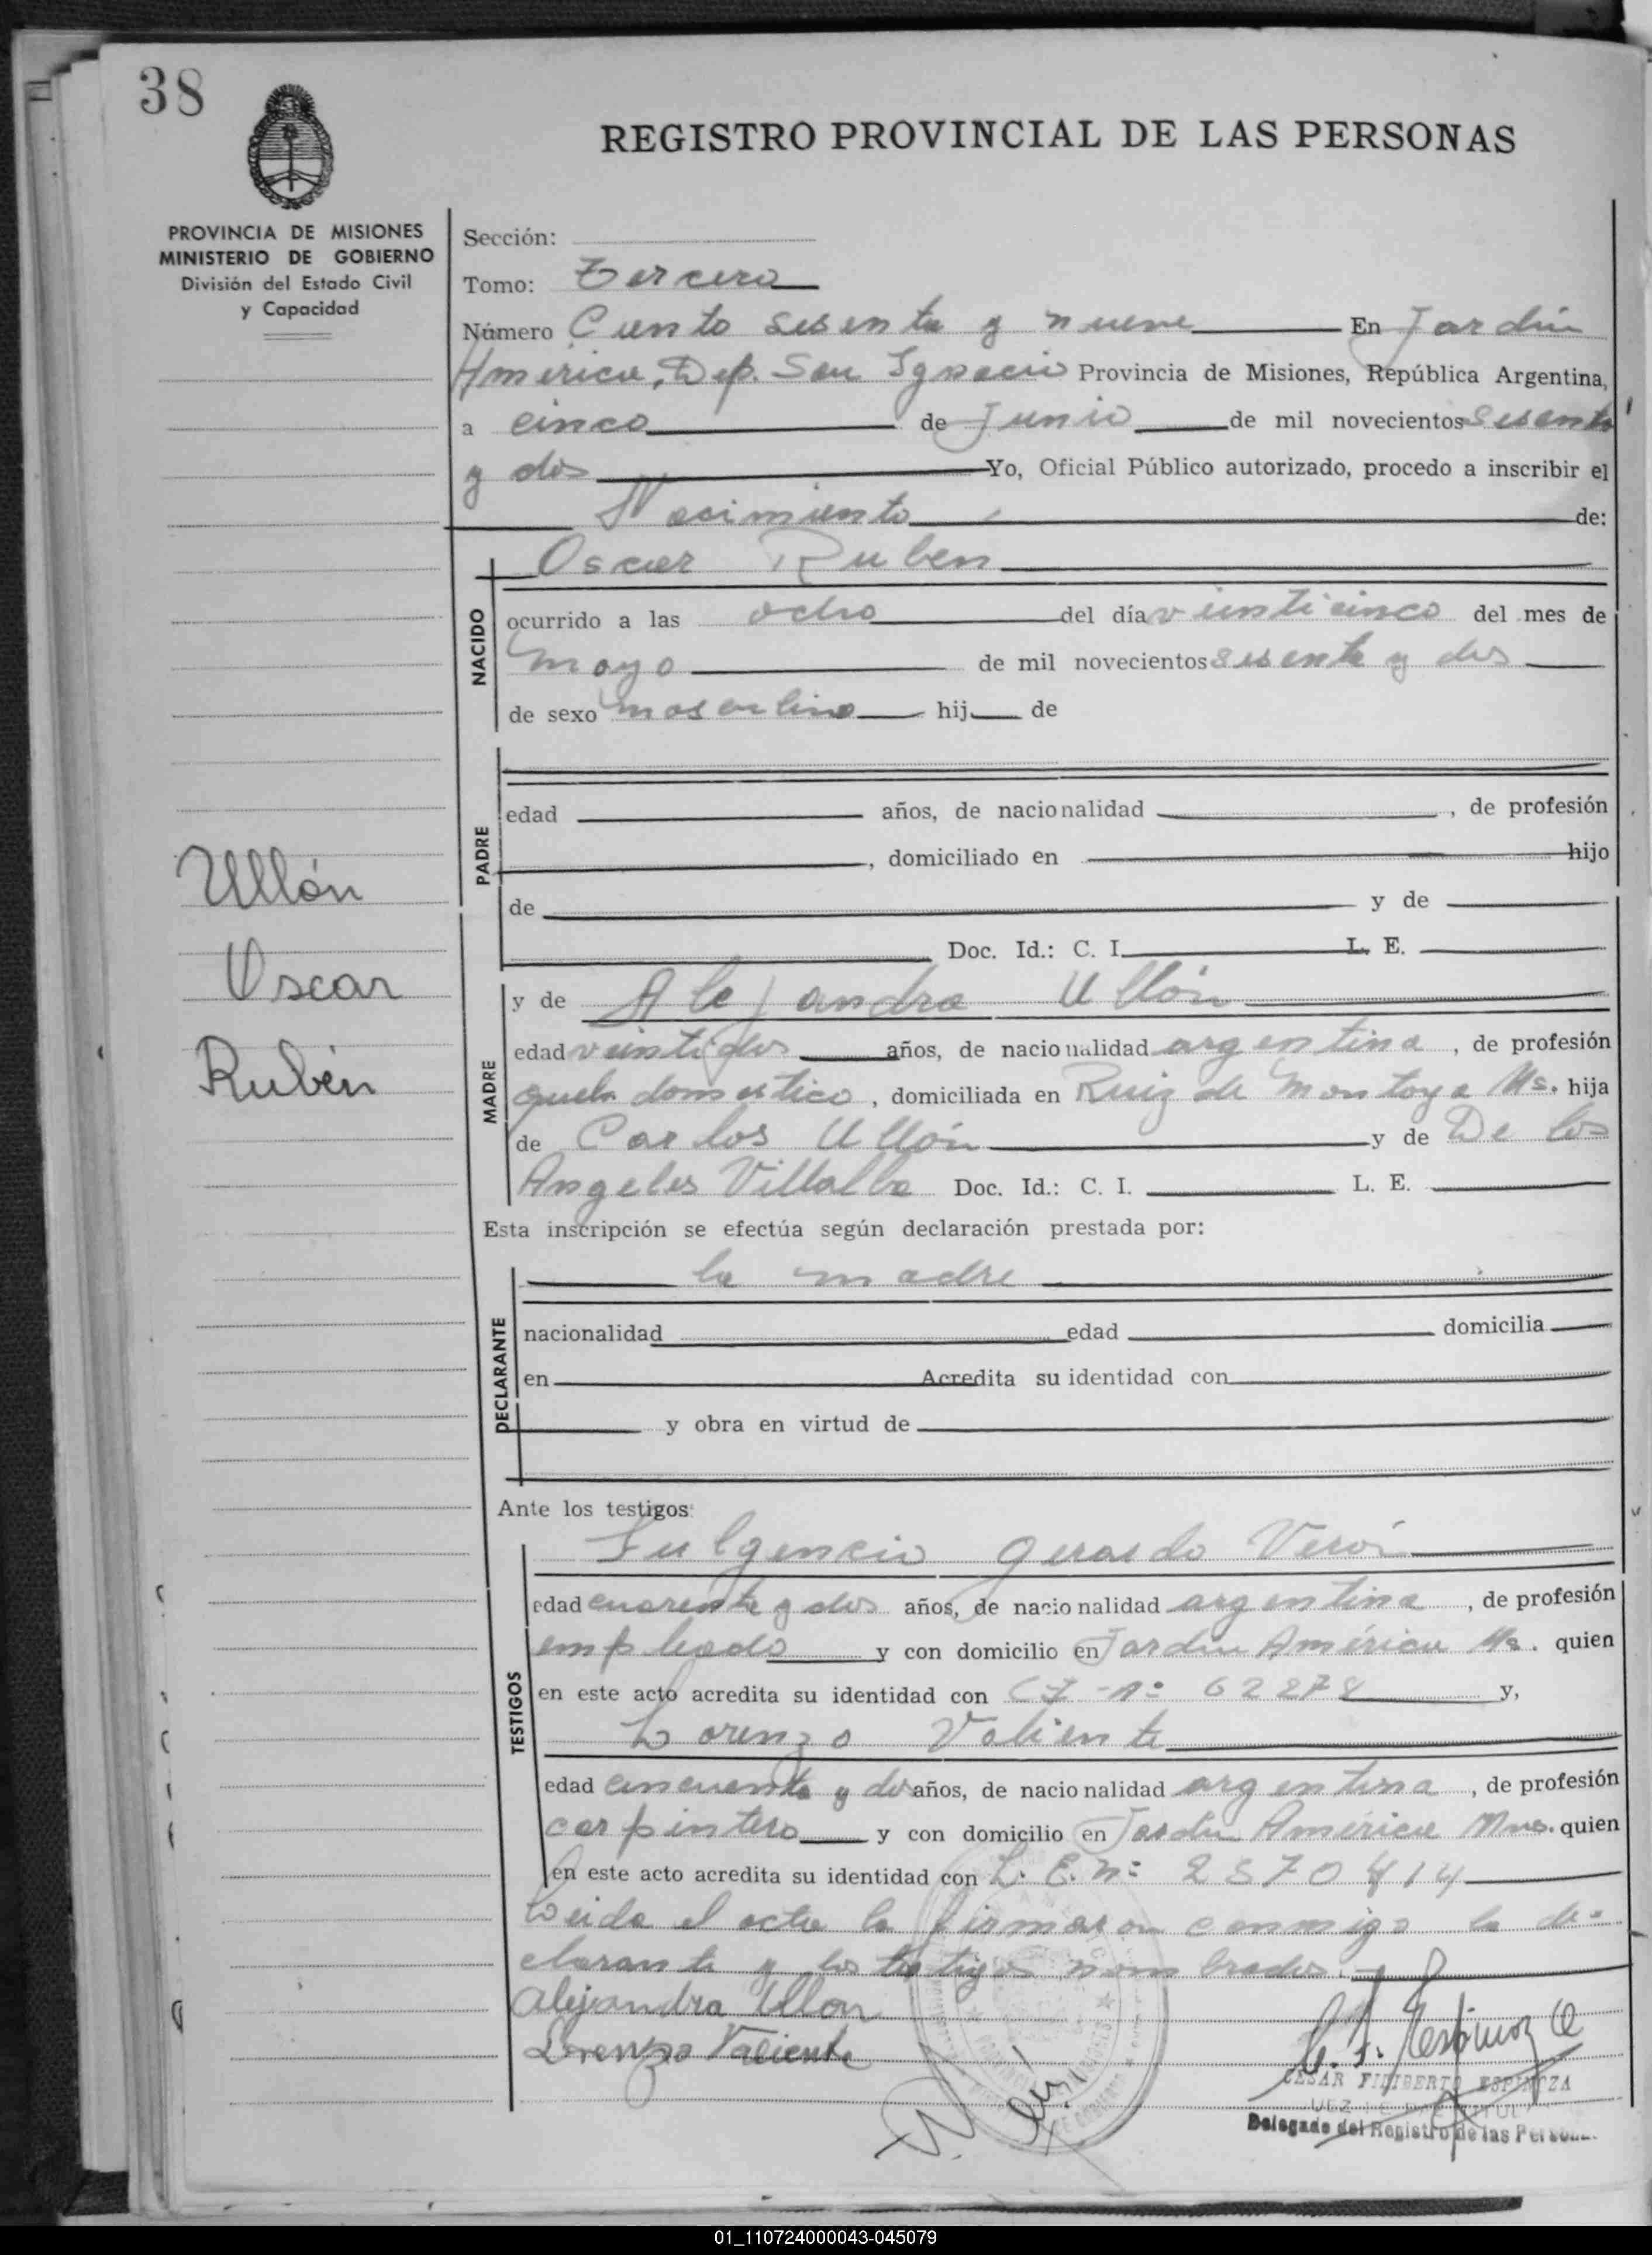 38
REGISTRO PROVINCIAL DE LAS PERSONAS
PROVINCIA DE MISIONES
MINISTERIO DE GOBIERNO
División del Estado Civil
y Capacidad
Sección:
Tomo: Tercero
Número Ciento sesenta y nueve En Jardín
América, Dep. San Ignacio Provincia de Misiones, República Argentina,
a cinco de Junio de mil novecientos sesenta
y dos Yo, Oficial Público autorizado, procedo a inscribir el
Nacimiento de:
Oscar Ruben
NACIDO
ocurrido a las ocho del día veinticinco del mes de
mayo de mil novecientos sesenta y dos
de sexo masculino hij de
PADRE
edad años, de nacionalidad , de profesión
, domiciliado en hijo
de y de
Doc. Id.: C. I. L. E.
Ullón
Oscar
Rubén
MADRE
y de Alejandra Ullón
edad veintidos años, de nacionalidad argentina , de profesión
domestico , domiciliada en Ruiz de Montoya Ms. hija
de Carlos Ullón y de De los
Angeles Villalba Doc. Id.: C. I. L. E.
Esta inscripción se efectúa según declaración prestada por:
la madre
DECLARANTE
nacionalidad edad domicilia
en Acredita su identidad con
y obra en virtud de
Ante los testigos:
Fulgencio Gerardo Verón
TESTIGOS
edad cuarenta y dos años, de nacionalidad argentina , de profesión
empleado y con domicilio en Jardín América Ms. quien
en este acto acredita su identidad con CI - nº 62278 y,
Lorenzo Valiente
edad cincuenta y dos años, de nacionalidad argentina , de profesión
carpintero y con domicilio en Jardín América Mnes. quien
en este acto acredita su identidad con L. E. Nº 2570814
Leida el acta la firmaron conmigo la de-
clarante y los testigos nombrados.
Alejandra Ullon
Lorenzo Valiente
CESAR FILIBERTO ESPINOZA
JUEZ DE PAZ TITULAR
Delegado del Registro de las Personas
01_110724000043-045079